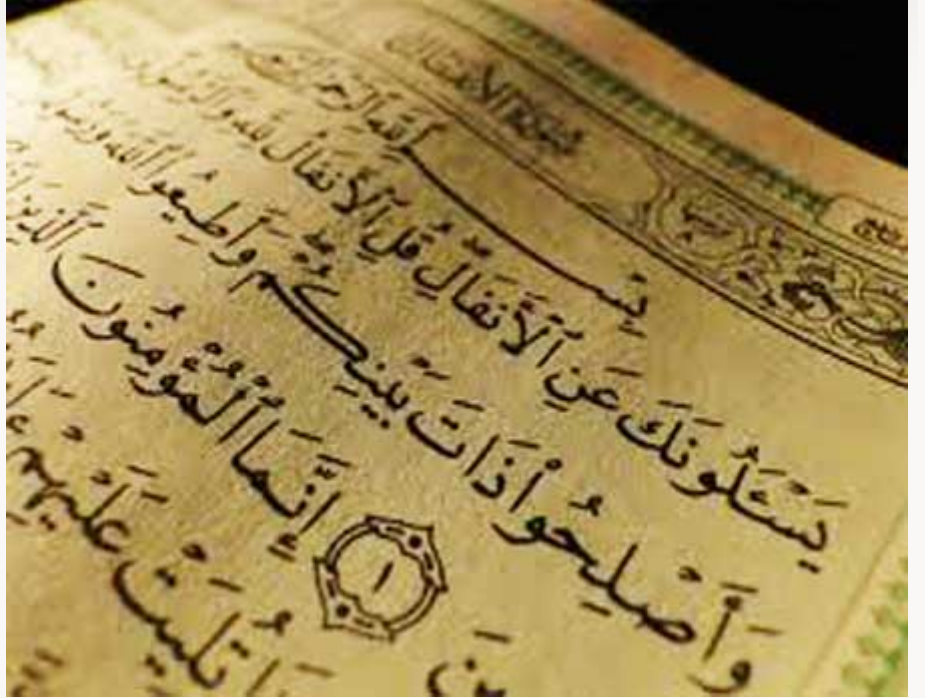 سورة الأنفال
بِسْمِ ٱللَّهِ ٱلرَّحْمَـٰنِ
يَسْـَٔلُونَكَ عَنِ ٱلْأَنفَالِ قُلِ ٱلْأَنفَالُ لِلَّهِ وَٱلرَّسُولِ
وَأَصْلِحُوا۟ ذَاتَ بَيْنِكُمْ وَأَطِيعُوا۟ ٱللَّهَ وَرَسُولَهُ
١ إِنَّمَا ٱلْمُؤْمِنُونَ ٱلَّذِينَ
تُلِيَتْ عَلَيْهِمْ